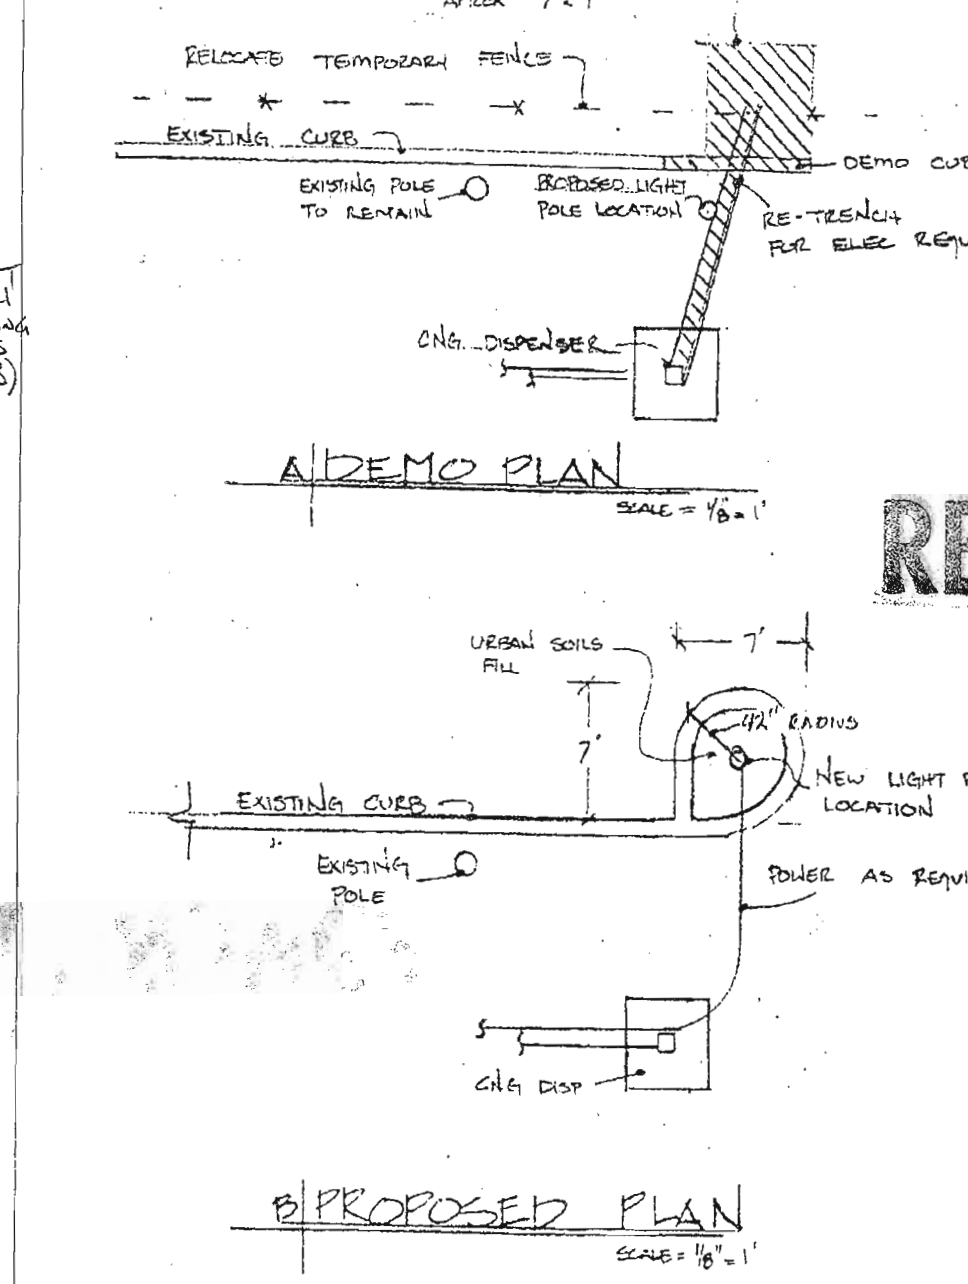 RELOCATE TEMPORARY FENCE
EXISTING CURB
DEMO CUR
EXISTING POLE
TO REMAIN
PROPOSED LIGHT
POLE LOCATION
RE-TRENCH
FOR ELEC REQU
CNG DISPENSER
A DEMO PLAN
SCALE = 1/8" = 1'
RE
URBAN SOILS
FILL
7'
42" RADIUS
7'
NEW LIGHT P
LOCATION
EXISTING CURB
EXISTING
POLE
POWER AS REQUI
CNG DISP
B PROPOSED PLAN
SCALE = 1/8" = 1'